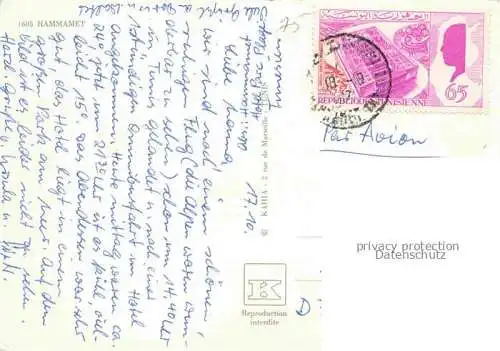 1605 HAMMAMET
Tunesien
17.10.
Liebe Mama,
wir sind nach einem schönen,
ruhigen Flug (die Alpen waren wun-
derbar zu sehen) schon um 14.40 Uhr
in Tunis gelandet u. nach einer
1stündigen Omnibusfahrt im Hotel
angekommen. Heute mittag waren ca.
24° jetzt um 21.30 Uhr ist es kühl, viel-
leicht 15°. Das Abendessen war sehr
gut. Das Hotel liegt in einem
großen Park am Meer. Auf dem
Bild ist es leider nicht zu sehen.
Herzl. Grüße v. Ursula u.
© KAHIA - 2 rue de Marseille
Reproduction
interdite
75-
REPUBLIQUE TUNISIENNE
65
Par Avion
privacy protection
Datenschutz
D